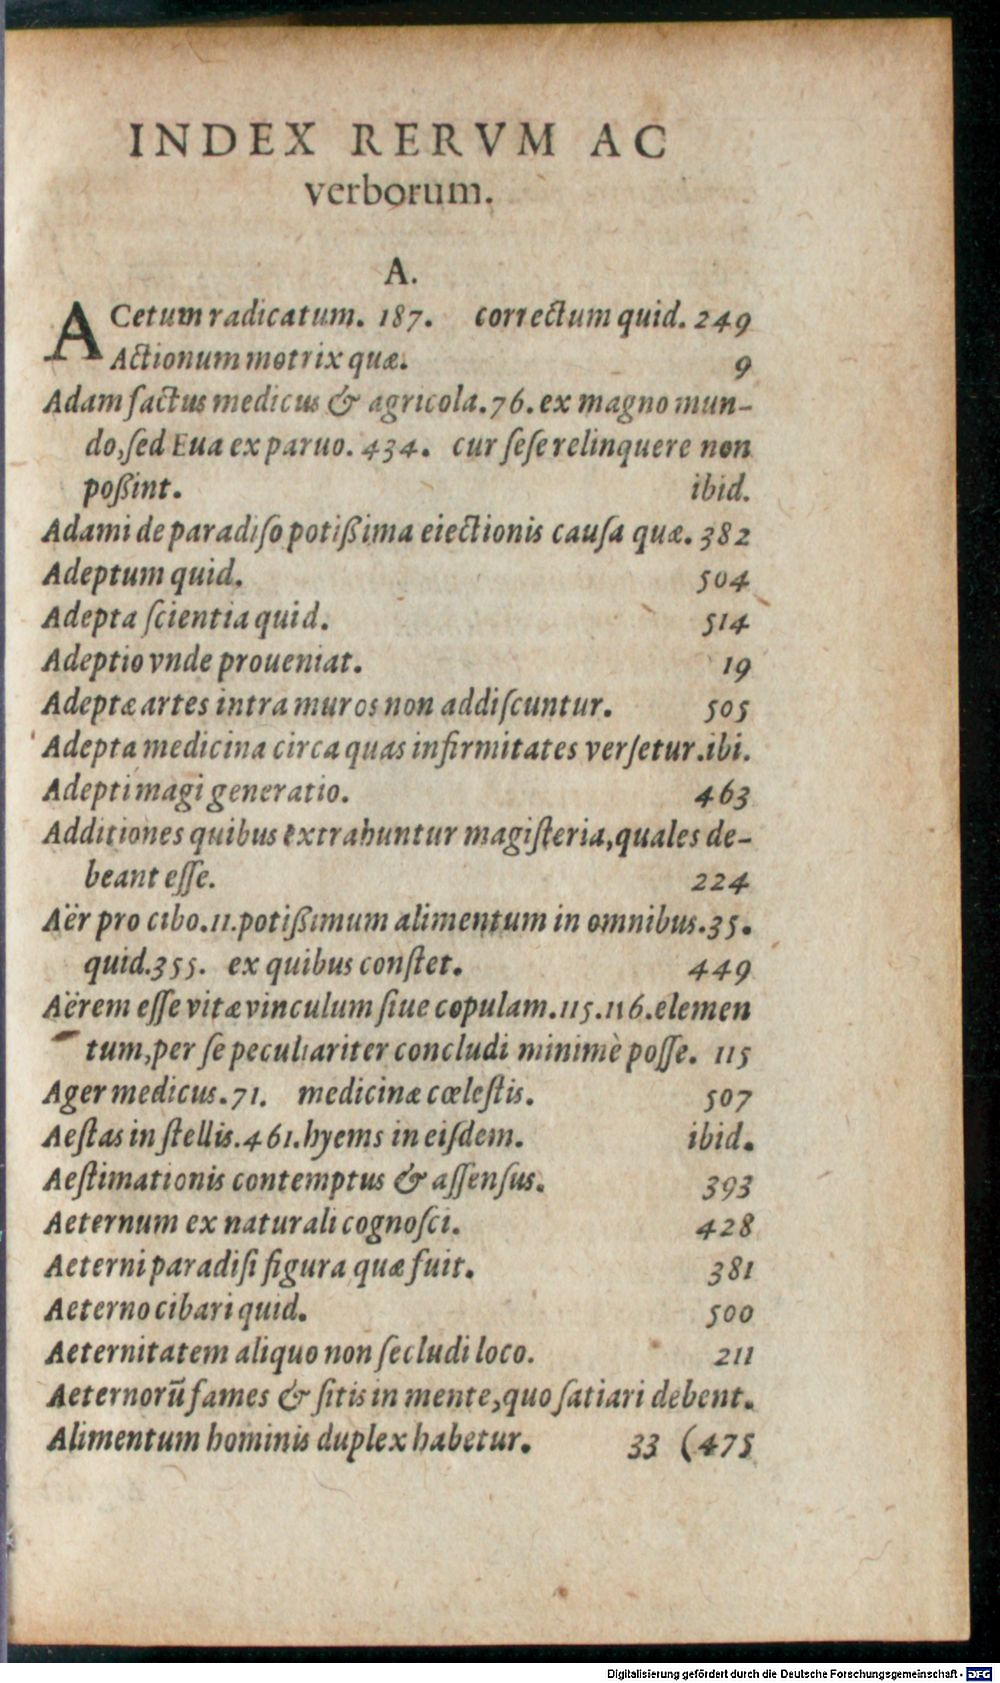 INDEX RERVM AC
verborum.
A.
ACetum radicatum. 187. correctum quid. 249
Actionum motrix quæ. 9
Adam factus medicus & agricola. 76. ex magno mun-
do, sed Eua ex paruo. 434. cur sese relinquere non
poßint. ibid.
Adami de paradiso potißima eiectionis causa quæ. 382
Adeptum quid. 504
Adepta scientia quid. 514
Adeptio vnde proueniat. 19
Adeptæ artes intra muros non addiscuntur. 505
Adepta medicina circa quas infirmitates versetur. ibi.
Adepti magi generatio. 463
Additiones quibus extrahuntur magisteria, quales de-
beant esse. 224
Aër pro cibo. 11. potißimum alimentum in omnibus. 35.
quid. 355. ex quibus constet. 449
Aërem esse vitæ vinculum siue copulam. 115. 116. elemen
tum, per se peculiariter concludi minimè posse. 115
Ager medicus. 71. medicinæ cœlestis. 507
Aestas in stellis. 461. hyems in eisdem. ibid.
Aestimationis contemptus & assensus. 393
Aeternum ex naturali cognosci. 428
Aeterni paradisi figura quæ fuit. 381
Aeterno cibari quid. 500
Aeternitatem aliquo non secludi loco. 211
Aeternorũ fames & sitis in mente, quo satiari debent.
Alimentum hominis duplex habetur. 33 (475
Digitalisierung gefördert durch die Deutsche Forschungsgemeinschaft - DFG